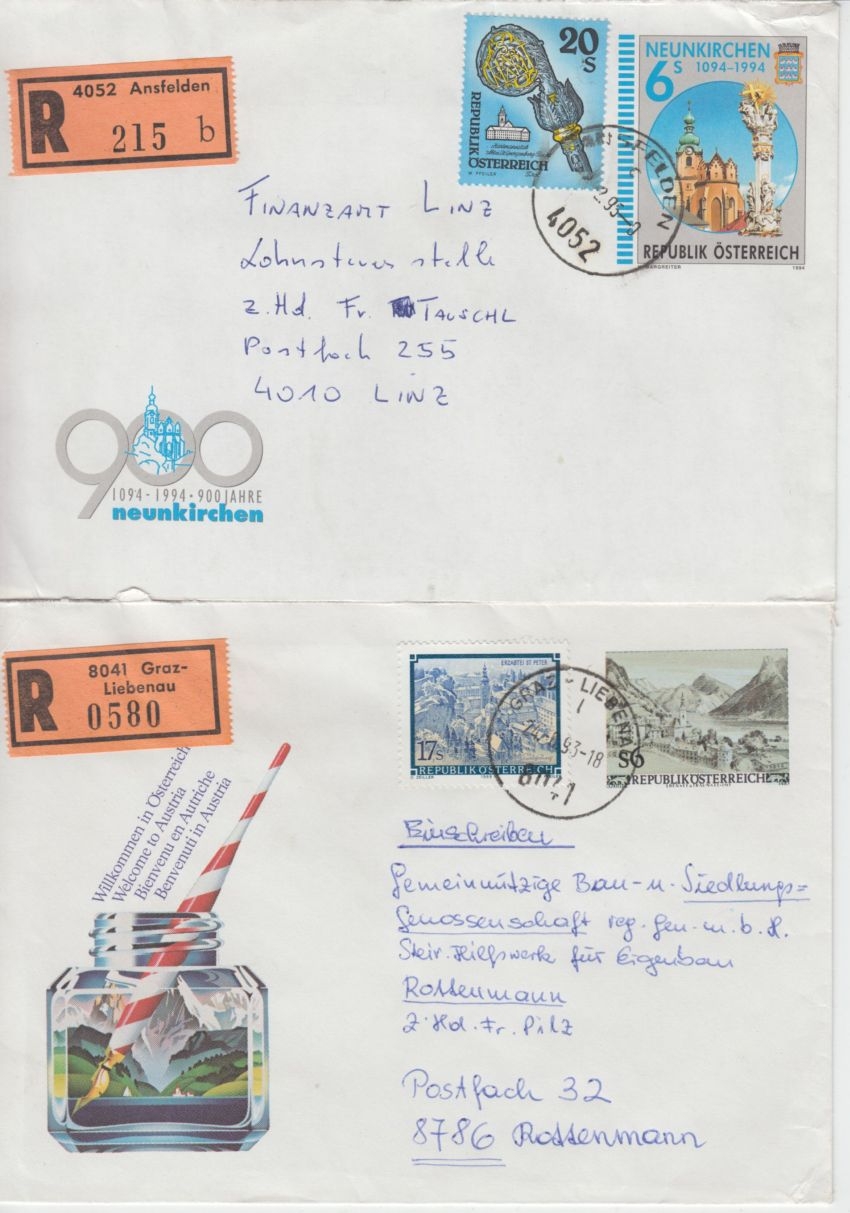 4052 Ansfelden
R 215 b
20 S
REPUBLIK
ÖSTERREICH
W. PFEILER
NEUNKIRCHEN
6 S 1094–1994
REPUBLIK ÖSTERREICH
MARGREITER 1994
ANSFELDEN
4052
FINANZAMT LINZ
Lohnsteuerstelle
z.Hd. Fr. TAUSCHL
Postfach 255
4010 LINZ
900
1094 - 1994 • 900 JAHRE
neunkirchen
R 8041 Graz-
Liebenau
0580
ERZABTEI ST PETER
17 S
REPUBLIK ÖSTERREICH
GRAZ LIEBENAU
93-18
8041
S6
REPUBLIK ÖSTERREICH
Willkommen in Österreich
Welcome to Austria
Bienvenu en Autriche
Benvenuti in Austria
Einschreiben
Gemeinnützige Bau-u. Siedlungs=
Genossenschaft reg. Gen. m. b. H.
Steir. Hilfswerk für Eigenbau
Rottenmann
z. Hd. Fr. Pilz
Postfach 32
8786 Rottenmann